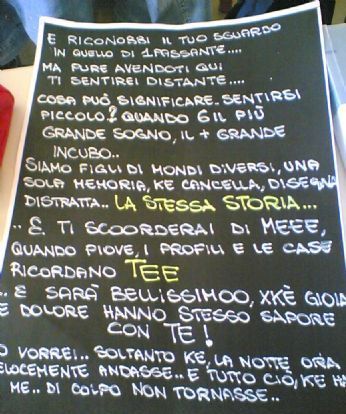 E RICONOBBI IL TUO SGUARDO
IN QUELLO DI 1 PASSANTE....
MA PURE AVENDOTI QUI
TI SENTIREI DISTANTE....
COSA PUÒ SIGNIFICARE. SENTIRSI
PICCOLO? QUANDO 6 IL PIÙ
GRANDE SOGNO, IL + GRANDE
INCUBO..
SIAMO FIGLI DI MONDI DIVERSI, UNA
SOLA MEMORIA, KE CANCELLA, DISEGNA
DISTRATTA.. LA STESSA STORIA...
.. E TI SCOORDERAI DI MEEE,
QUANDO PIOVE, I PROFILI E LE CASE
RICORDANO TEE
.. E SARÀ BELLISSIMOO, XKÈ GIOIA
E DOLORE HANNO STESSO SAPORE
CON TE!
O VORREI.. SOLTANTO KE, LA NOTTE ORA,
ELOCEMENTE ANDASSE.. E TUTTO CIÒ, KE HA
ME.. DI COLPO NON TORNASSE..